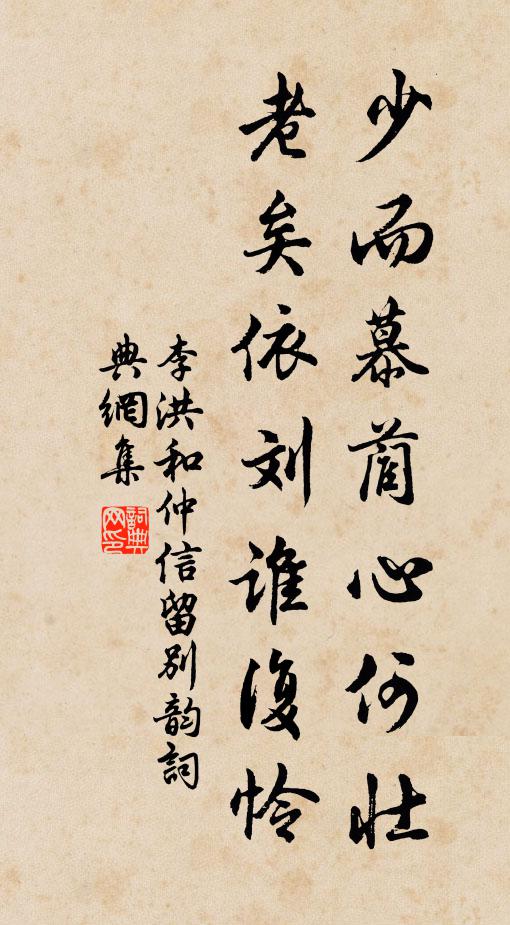 少而慕蔺心何壮
老矣依刘谁復怜
李洪和仲信留别韵詞
典網集
詞典網印